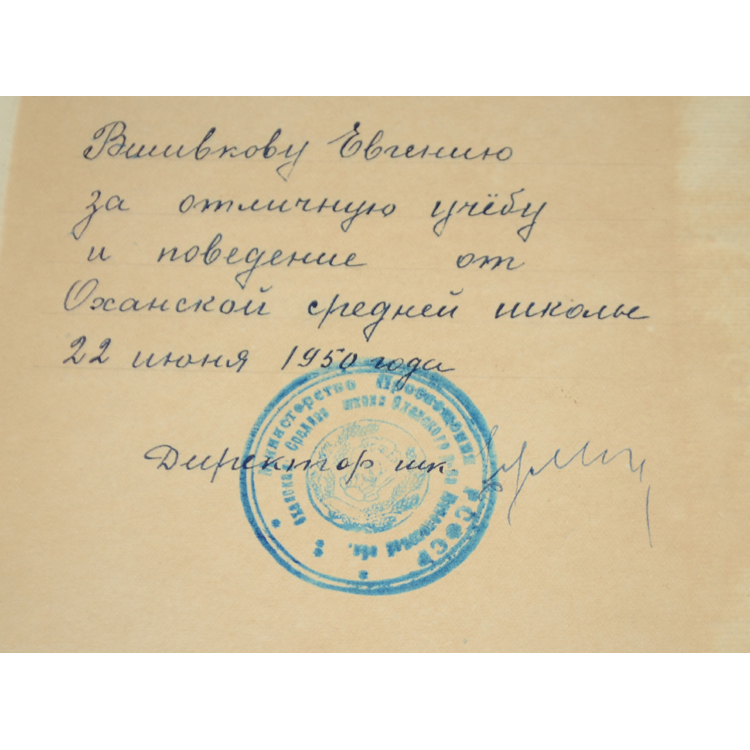 Вшивкову Евгению
за отличную учёбу
и поведение от
Оханской средней школы
22 июня 1950 года
Директор шк.
Министерство Просвещения РСФСР
Оханская Средняя школа Оханского
обл.